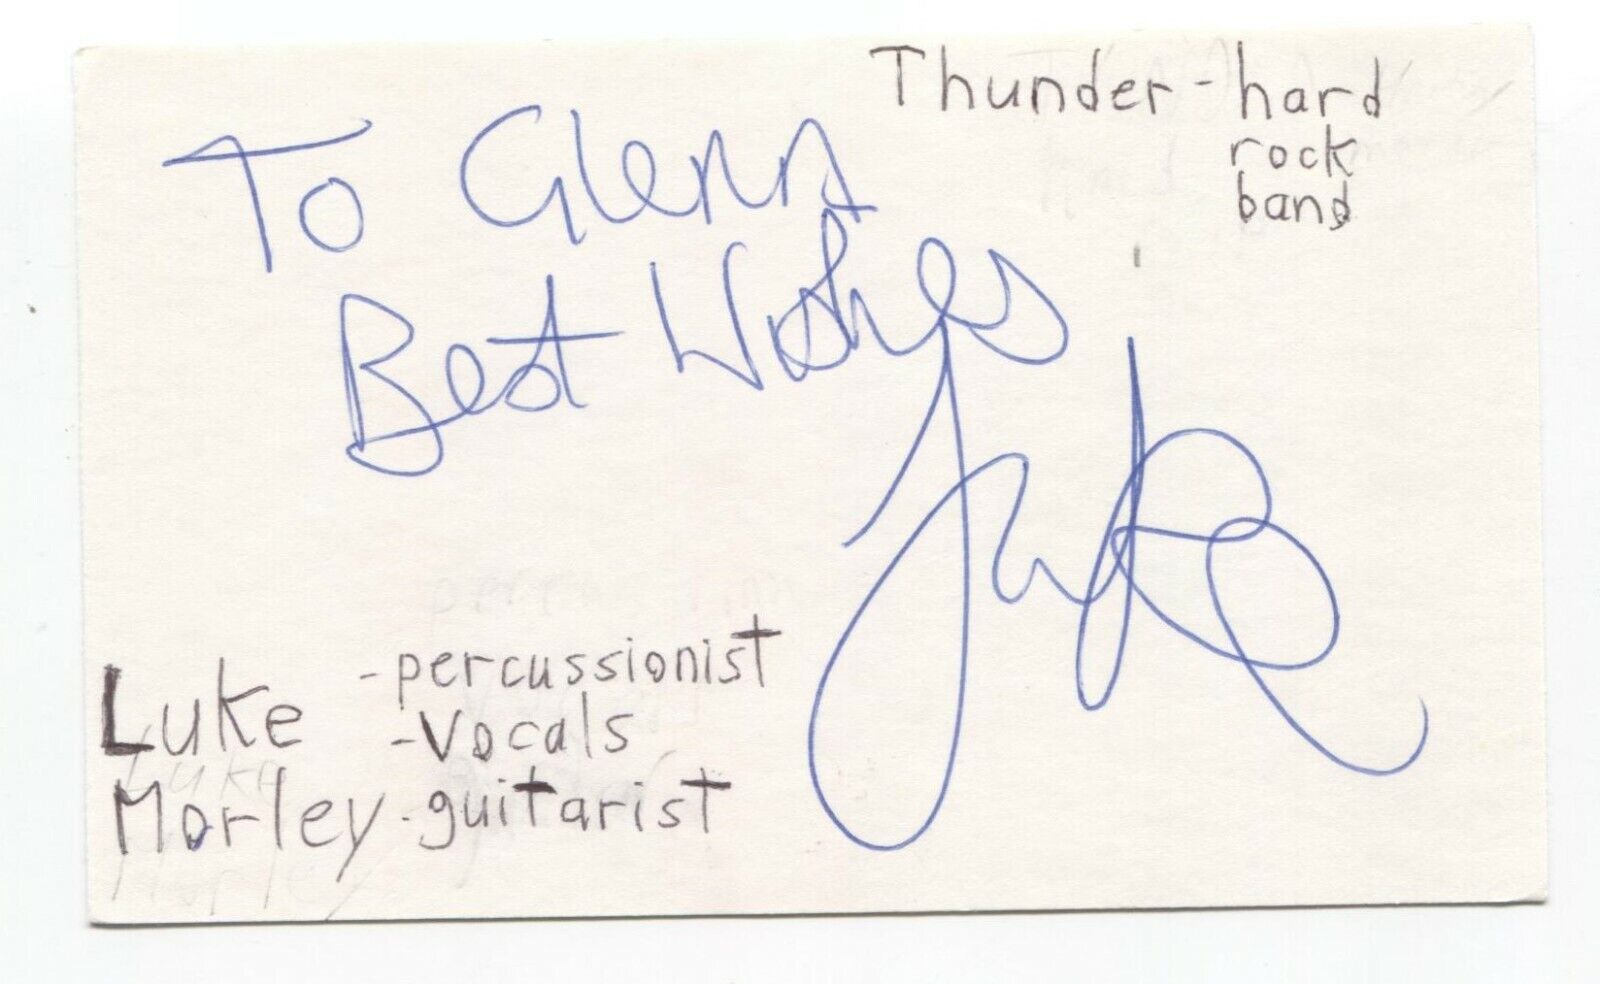 Thunder - hard
rock
band
To Glenn
Best Wishes
Luke
Luke - percussionist
- Vocals
Morley - guitarist
Luke
Morley